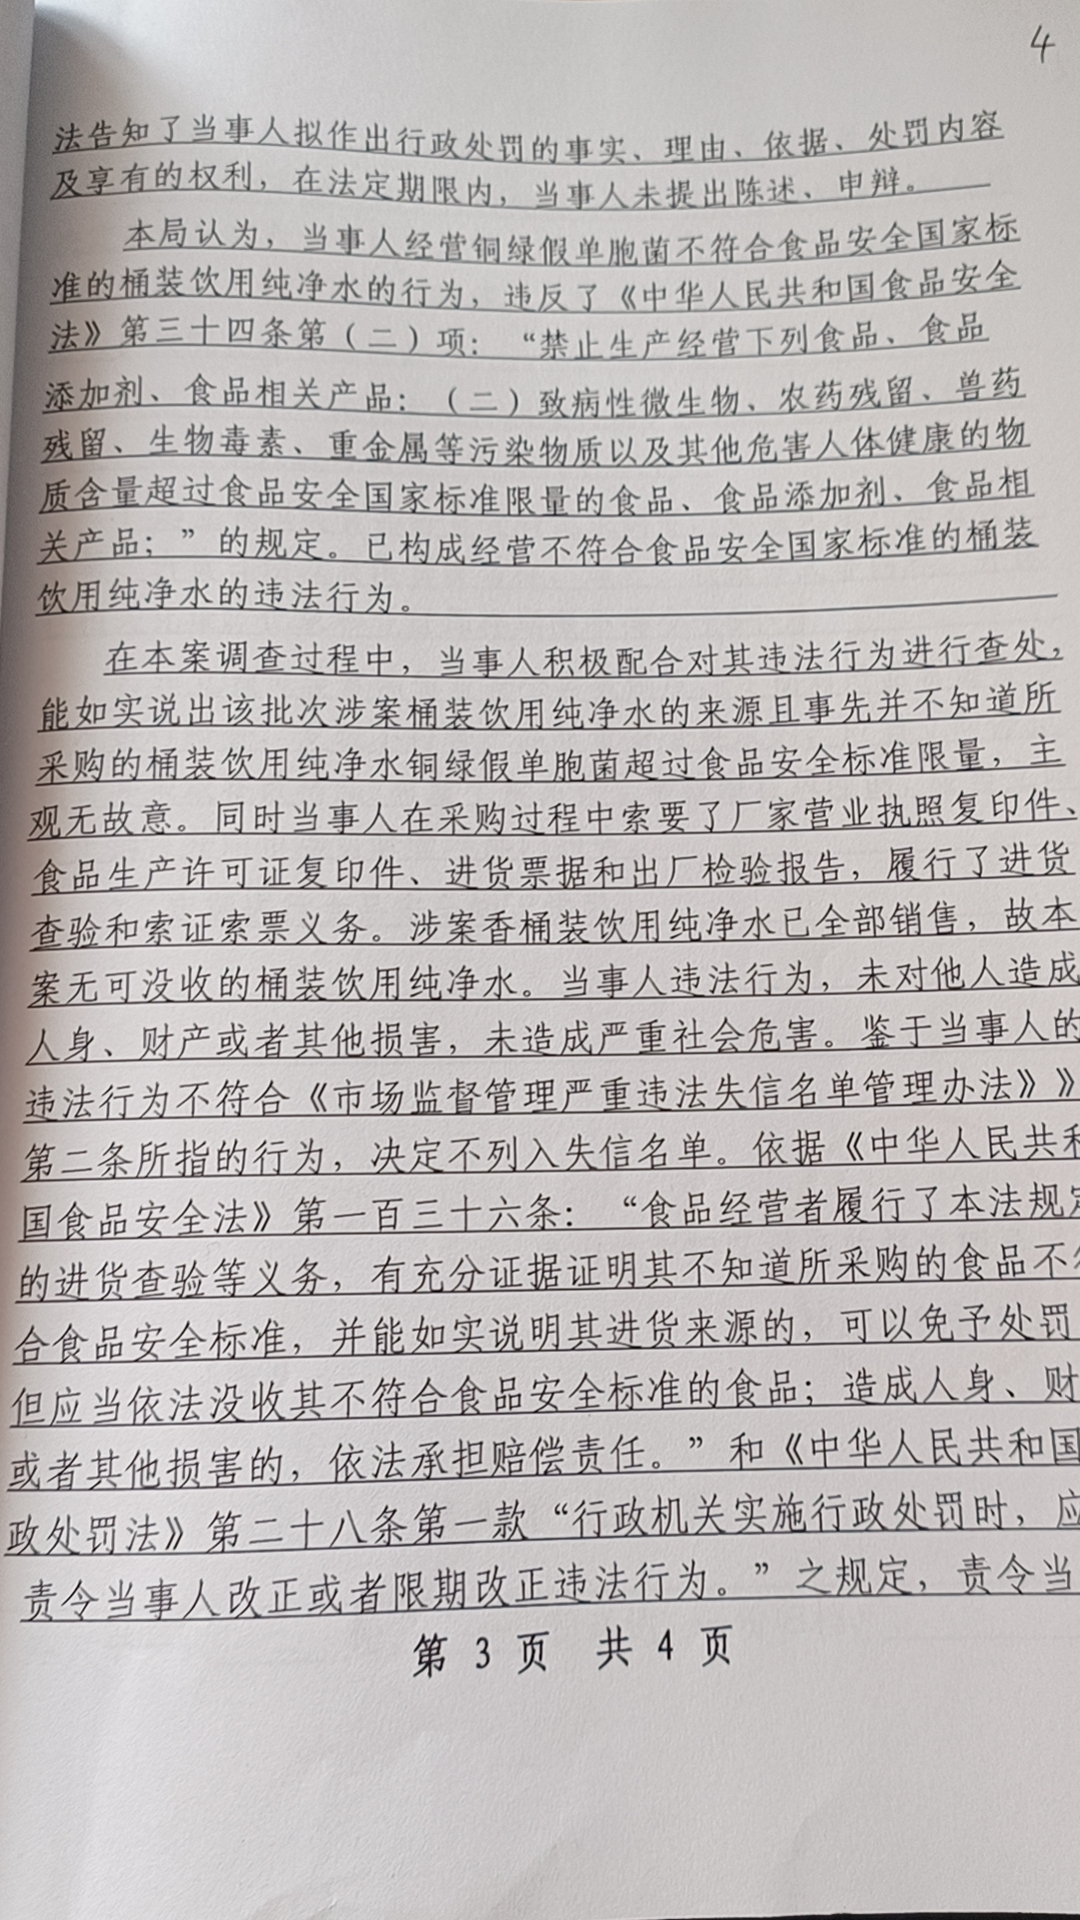 4
法告知了当事人拟作出行政处罚的事实、理由、依据、处罚内容
及享有的权利，在法定期限内，当事人未提出陈述、申辩。
本局认为，当事人经营铜绿假单胞菌不符合食品安全国家标
准的桶装饮用纯净水的行为，违反了《中华人民共和国食品安全
法》第三十四条第（二）项：“禁止生产经营下列食品、食品
添加剂、食品相关产品：（二）致病性微生物、农药残留、兽药
残留、生物毒素、重金属等污染物质以及其他危害人体健康的物
质含量超过食品安全国家标准限量的食品、食品添加剂、食品相
关产品；”的规定。已构成经营不符合食品安全国家标准的桶装
饮用纯净水的违法行为。
在本案调查过程中，当事人积极配合对其违法行为进行查处，
能如实说出该批次涉案桶装饮用纯净水的来源且事先并不知道所
采购的桶装饮用纯净水铜绿假单胞菌超过食品安全标准限量，主
观无故意。同时当事人在采购过程中索要了厂家营业执照复印件、
食品生产许可证复印件、进货票据和出厂检验报告，履行了进货
查验和索证索票义务。涉案香桶装饮用纯净水已全部销售，故本
案无可没收的桶装饮用纯净水。当事人违法行为，未对他人造成
人身、财产或者其他损害，未造成严重社会危害。鉴于当事人的
违法行为不符合《市场监督管理严重违法失信名单管理办法》》
第二条所指的行为，决定不列入失信名单。依据《中华人民共和
国食品安全法》第一百三十六条：“食品经营者履行了本法规定
的进货查验等义务，有充分证据证明其不知道所采购的食品不符
合食品安全标准，并能如实说明其进货来源的，可以免予处罚
但应当依法没收其不符合食品安全标准的食品；造成人身、财
或者其他损害的，依法承担赔偿责任。”和《中华人民共和国
政处罚法》第二十八条第一款“行政机关实施行政处罚时，应
责令当事人改正或者限期改正违法行为。”之规定，责令当
第 3 页 共 4 页